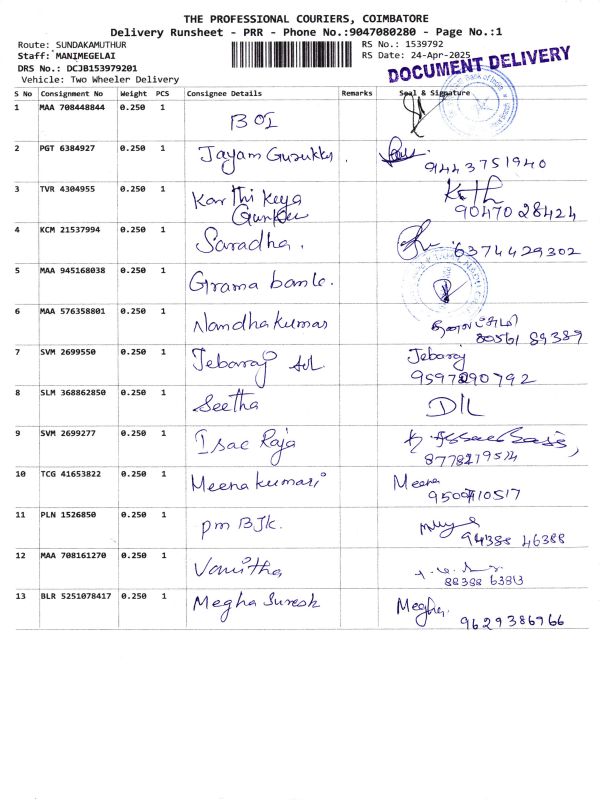 THE PROFESSIONAL COURIERS, COIMBATORE
Delivery Runsheet - PRR - Phone No.:9047080280 - Page No.:1
Route: SUNDAKAMUTHUR RS No.: 1539792
Staff: MANIMEGELAI RS Date: 24-Apr-2025
DRS No.: DCJB153979201 DOCUMENT DELIVERY
Vehicle: Two Wheeler Delivery
S No Consignment No Weight PCS Consignee Details Remarks Seal & Signature
1 MAA 708448844 0.250 1 BOI
2 PGT 6384927 0.250 1 Jayam 9443751940
3 TVR 4304955 0.250 1 Karthikeya 9047028424
4 KCM 21537994 0.250 1 Saradha. 6374429302
5 MAA 945168038 0.250 1 Grama bank.
6 MAA 576358801 0.250 1 Nandhakumar 80561 89389
7 SVM 2699550 0.250 1 Jebaraj Jebaraj
9597290792
8 SLM 368862850 0.250 1 Seetha D/L
9 SVM 2699277 0.250 1 Isac Raja
10 TCG 41653822 0.250 1 Meenakumari Meena
11 PLN 1526850 0.250 1 pm BJK. 94388 46388
12 MAA 708161270 0.250 1 Vanitha
13 BLR 5251078417 0.250 1 Megha Suresh Megha.
9629386966